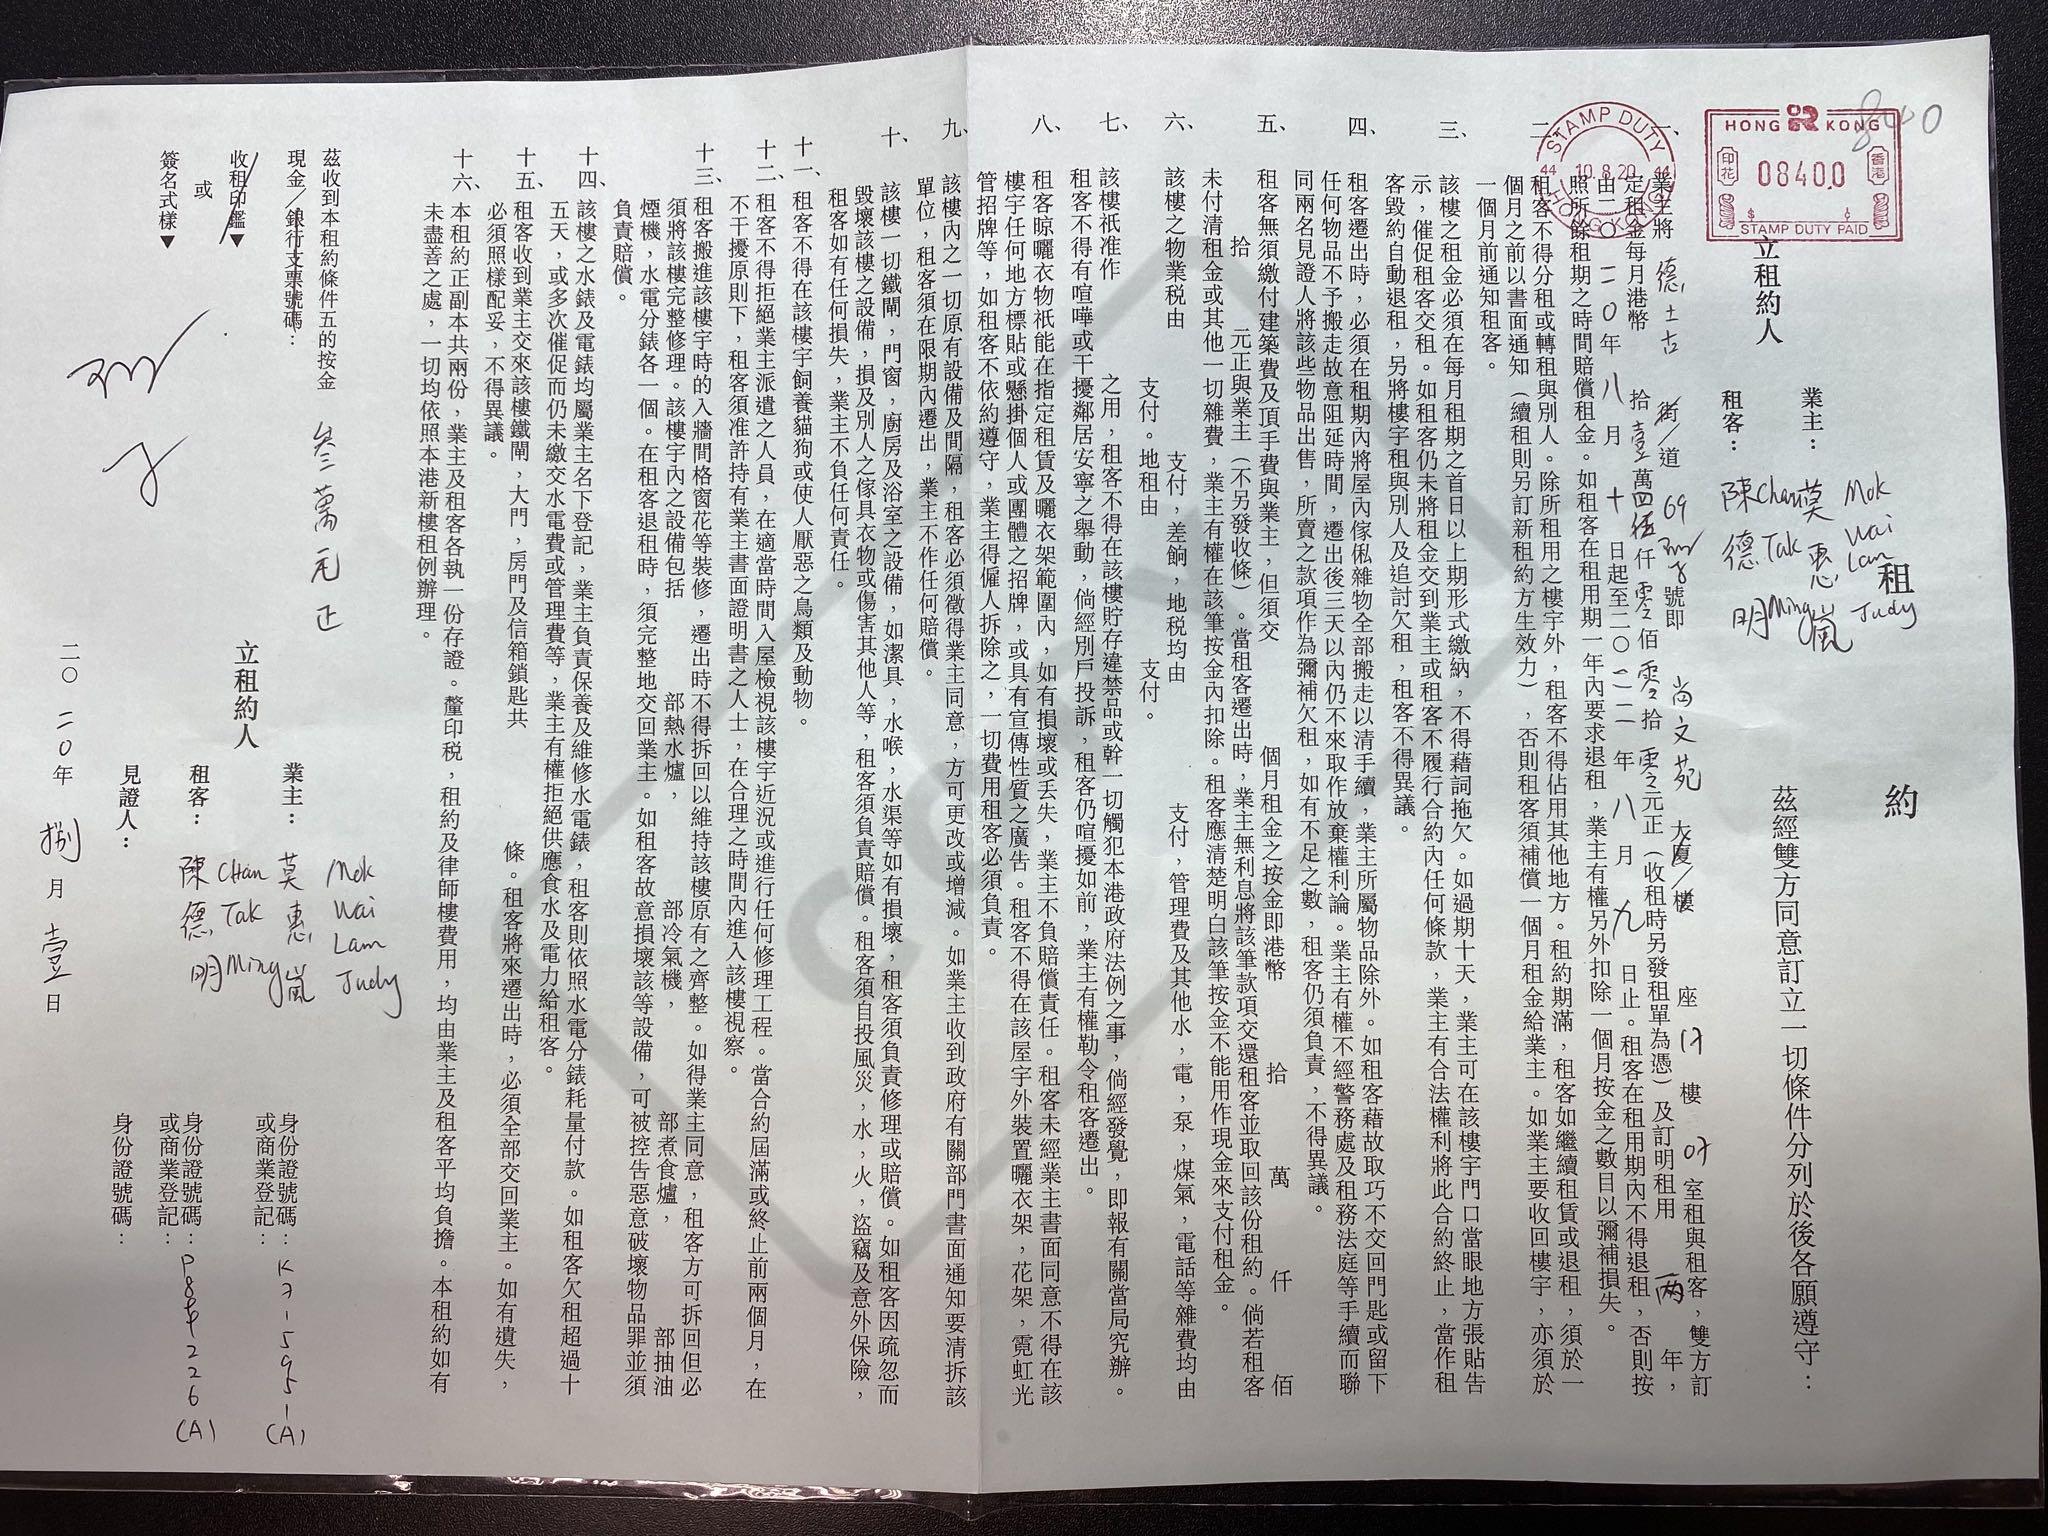 8400
HONG KONG
印花
0840.0
香港
$ ¢
STAMP DUTY PAID
STAMP DUTY
44 10.8.20 44
HONG KONG
租約
業主: 莫惠嵐 Mok Wai Lam Judy
租客: 陳德明 Chan Tak Ming
立租約人
茲經雙方同意訂立一切條件分列於後各願遵守:
一、業主將 德士古 街/道 69 號即 尚文苑 大廈/樓 座 17 樓 07 室租與租客,雙方訂
定租金每月港幣 拾壹萬四仟零佰零拾零元正(收租時另發租單為憑)及訂明租用 兩 年,
由二○二○年八月十日起至二○二二年八月九日止。租客在租用期內不得退租,否則按
照所餘租期之時間賠償租金。如租客在租用期一年內要求退租,業主有權另外扣除一個月按金之數目以彌補損失。
二、租客不得分租或轉租與別人。除所租用之樓宇外,租客不得佔用其他地方。租約期滿,租客如繼續租賃或退租,須於一
個月之前以書面通知(續租則另訂新租約方生效力),否則租客須補償一個月租金給業主。如業主要收回樓宇,亦須於
一個月前通知租客。
三、該樓之租金必須在每月租期之首日以上期形式繳納,不得藉詞拖欠。如過期十天,業主可在該樓宇門口當眼地方張貼告
示,催促租客交租。如租客仍未將租金交到業主或租客不履行合約內任何條款,業主有合法權利將此合約終止,當作租
客毀約自動退租,另將樓宇租與別人及追討欠租,租客不得異議。
四、租客遷出時,必須在租期內將屋內傢俬雜物全部搬走以清手續,業主所屬物品除外。如租客藉故取巧不交回門匙或留下
任何物品不予搬走故意阻延時間,遷出後三天以內仍不來取作放棄權利論。業主有權不經警務處及租務法庭等手續而聯
同兩名見證人將該些物品出售,所賣之款項作為彌補欠租,如有不足之數,租客仍須負責,不得異議。
五、租客無須繳付建築費及頂手費與業主,但須交 個月租金之按金即港幣 拾 萬 仟 佰
拾 元正與業主(不另發收條)。當租客遷出時,業主無利息將該筆款項交還租客並取回該份租約。倘若租客
未付清租金或其他一切雜費,業主有權在該筆按金內扣除。租客應清楚明白該筆按金不能用作現金來支付租金。
六、該樓之物業稅由 支付,差餉,地稅均由 支付,管理費及其他水,電,泵,煤氣,電話等雜費均由
支付。地租由 支付。
七、該樓祇准作 之用,租客不得在該樓貯存違禁品或幹一切觸犯本港政府法例之事,倘經發覺,即報有關當局究辦。
租客不得有喧嘩或干擾鄰居安寧之舉動,倘經別戶投訴,租客仍喧擾如前,業主有權勒令租客遷出。
八、租客晾曬衣物祇能在指定租賃及曬衣架範圍內,如有損壞或丟失,業主不負賠償責任。租客未經業主書面同意不得在該
樓宇任何地方標貼或懸掛個人或團體之招牌,或具有宣傳性質之廣告。租客不得在該屋宇外裝置曬衣架,花架,霓虹光
管招牌等,如租客不依約遵守,業主得僱人拆除之,一切費用租客必須負責。
九、該樓內之一切原有設備及間隔,租客必須徵得業主同意,方可更改或增減。如業主收到政府有關部門書面通知要清拆該
單位,租客須在限期內遷出,業主不作任何賠償。
十、該樓一切鐵閘,門窗,廚房及浴室之設備,如潔具,水喉,水渠等如有損壞,租客須負責修理或賠償。如租客因疏忽而
毀壞該樓之設備,損及別人之傢具衣物或傷害其他人等,租客須負責賠償。租客須自投風災,水,火,盜竊及意外保險,
租客如有任何損失,業主不負任何責任。
十一、租客不得在該樓宇飼養貓狗或使人厭惡之鳥類及動物。
十二、租客不得拒絕業主派遣之人員,在適當時間入屋檢視該樓宇近況或進行任何修理工程。當合約屆滿或終止前兩個月,在
不干擾原則下,租客須准許持有業主書面證明書之人士,在合理之時間內進入該樓視察。
十三、租客搬進該樓宇時的入牆間格窗花等裝修,遷出時不得拆回以維持該樓原有之齊整。如得業主同意,租客方可拆回但必
須將該樓完整修理。該樓宇內之設備包括 部熱水爐, 部冷氣機, 部煮食爐, 部抽油
煙機,水電分錶各一個。在租客退租時,須完整地交回業主。如租客故意損壞該等設備,可被控告惡意破壞物品罪並須
負責賠償。
十四、該樓之水錶及電錶均屬業主名下登記,業主負責保養及維修水電錶,租客則依照水電分錶耗量付款。如租客欠租超過十
五天,或多次催促而仍未繳交水電費或管理費等,業主有權拒絕供應食水及電力給租客。
十五、租客收到業主交來該樓鐵閘,大門,房門及信箱鎖匙共 條。租客將來遷出時,必須全部交回業主。如有遺失,
必須照樣配妥,不得異議。
十六、本租約正副本共兩份,業主及租客各執一份存證。釐印稅,租約及律師樓費用,均由業主及租客平均負擔。本租約如有
未盡善之處,一切均依照本港新樓租例辦理。
茲收到本租約條件五的按金 叁萬元正
現金/銀行支票號碼:
收租印鑑▼
或
簽名式樣▼
立租約人
業主: 莫惠嵐 Mok Wai Lam Judy
身份證號碼:
或商業登記:
租客: 陳德明 Chan Tak Ming
身份證號碼:
或商業登記:
見證人:
身份證號碼:
二○二○年 捌 月 壹 日
COPY